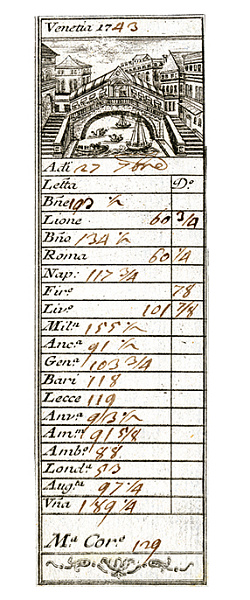 Venetia 1743
Adi 27 7bre
Letta Do
Bne 192 ½
Lione 60 3/4
Bño 134 ½
Roma 60 1/4
Nap: 117 3/4
Fire 78
Livo 101 7/8
Mila 155 ½
Anca 91 ½
Gena 103 3/4
Bari 118
Lecce 119
Anva 93 ½
Amm 91 5/8
Ambo 88
Londa 53
Augta 97 1/4
Vña 189 1/4
Ma Core 129